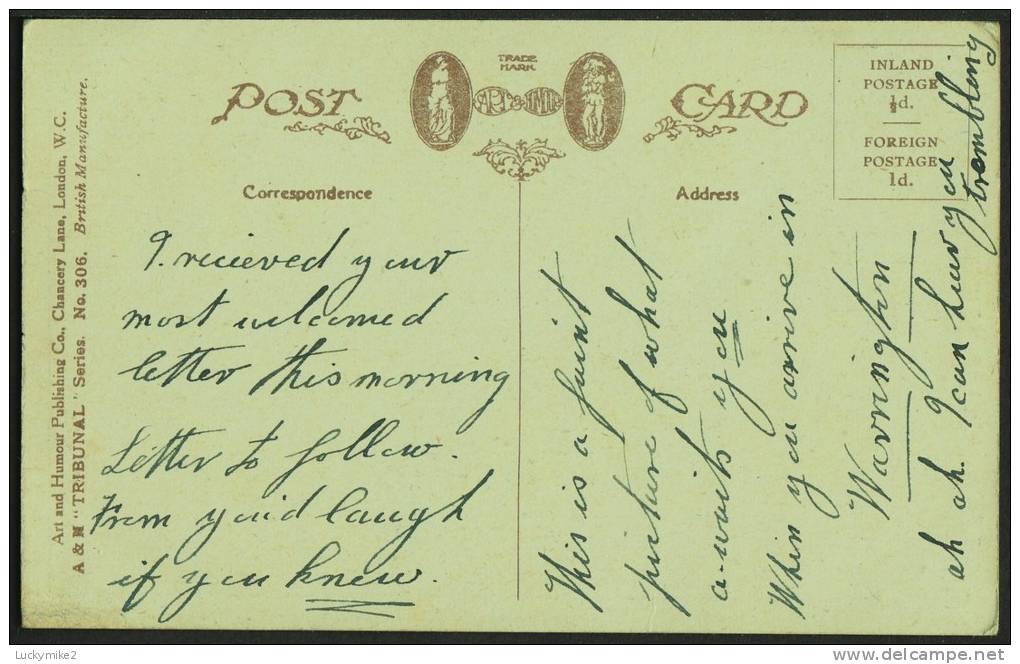 Art and Humour Publishing Co., Chancery Lane, London, W.C.
A & H "TRIBUNAL" Series. No. 306. British Manufacture.
POST CARD
TRADE
MARK
ART & HUMOUR
INLAND
POSTAGE
½d.
FOREIGN
POSTAGE
1d.
Correspondence
Address
I recieved your
most welcomed
letter this morning
Letter to follow.
From you'd laugh
if you knew.
This is a faint
picture of what
a-waits you
When you arrive in
Warrington
ah ah. I can hear you
trembling
Luckymike2
www.delcampe.net